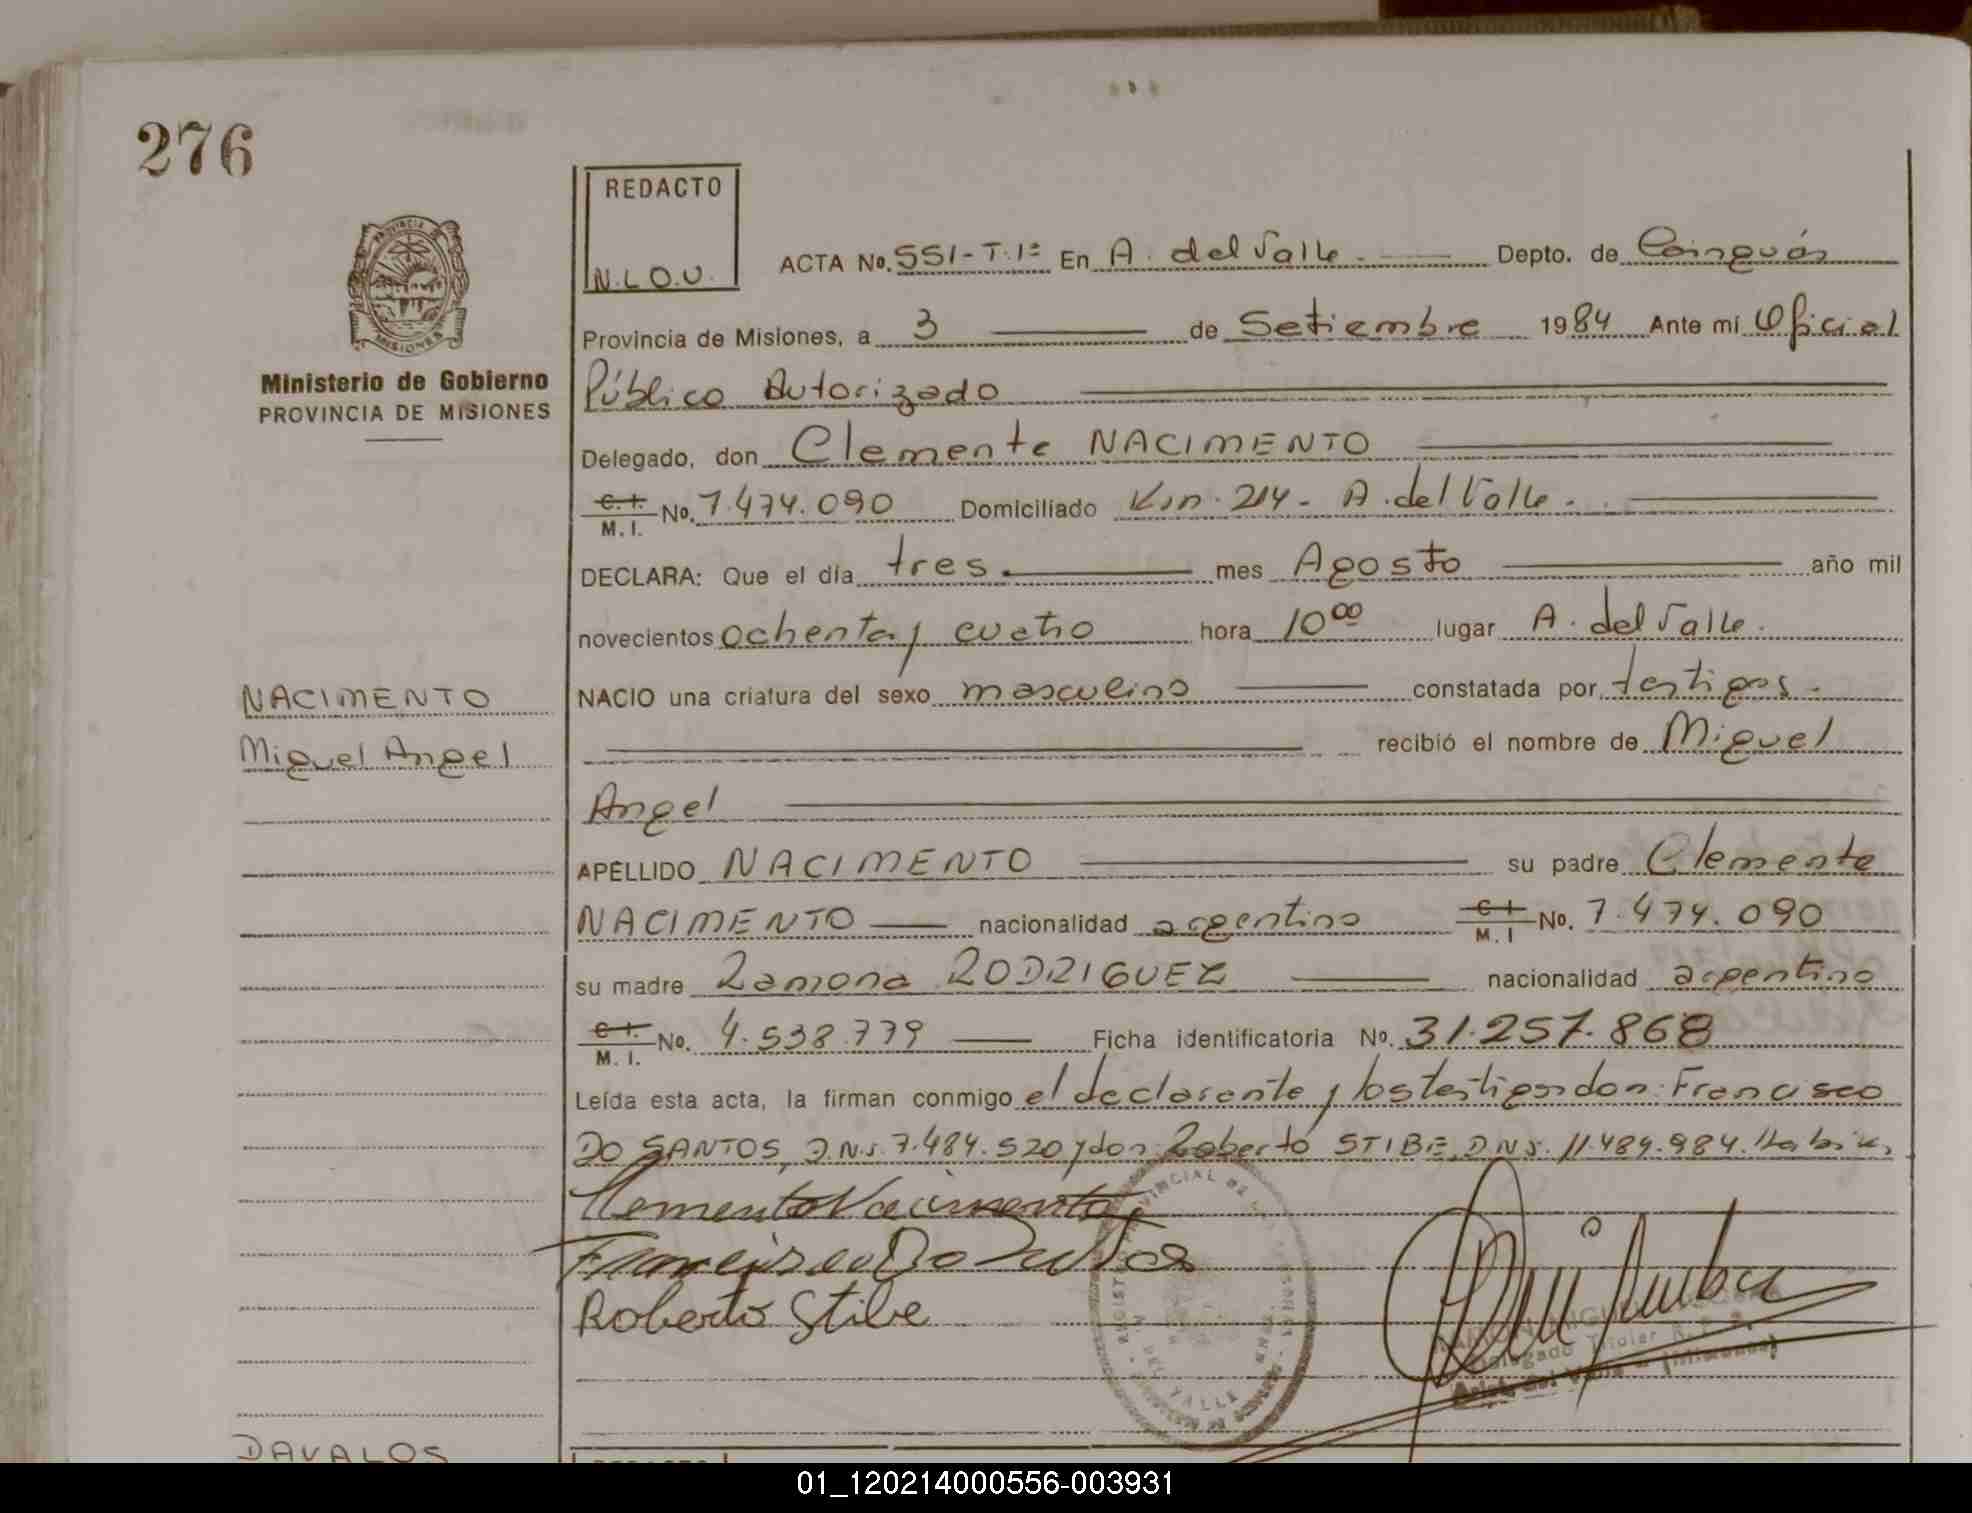 276
REDACTO
N.L.O.U.
PROVINCIA DE
MISIONES
Ministerio de Gobierno
PROVINCIA DE MISIONES
ACTA No. 551-T.1º En A. del Valle. Depto. de Cainguás
Provincia de Misiones, a 3 de Setiembre 1984 Ante mí Oficial
Público Autorizado
Delegado, don Clemente NACIMENTO
C.I. M.I. No. 7.474.090 Domiciliado Km. 214- A. del Valle.
DECLARA: Que el día tres. mes Agosto año mil
novecientos ochenta y cuatro hora 10⁰⁰ lugar A. del Valle.
NACIMENTO
NACIO una criatura del sexo masculino constatada por testigos.
Miguel Angel
recibió el nombre de Miguel
Angel
APELLIDO NACIMENTO su padre Clemente
NACIMENTO nacionalidad argentino C.I. M.I No. 7.474.090
su madre Ramona RODRIGUEZ nacionalidad argentino
C.I. M.I. No. 4.538.779 Ficha identificatoria No. 31.257.868
Leída esta acta, la firman conmigo el declarante y los testigos don: Francisco
DO SANTOS, D.N.I. 7.484.520 y don Roberto STIBE, D.N.I. 11.489.984.
Clemente Nacimento
Francisco Do Santos
Roberto Stibe
Delegado Titular
DEL VALLE
DAVALOS
01_120214000556-003931